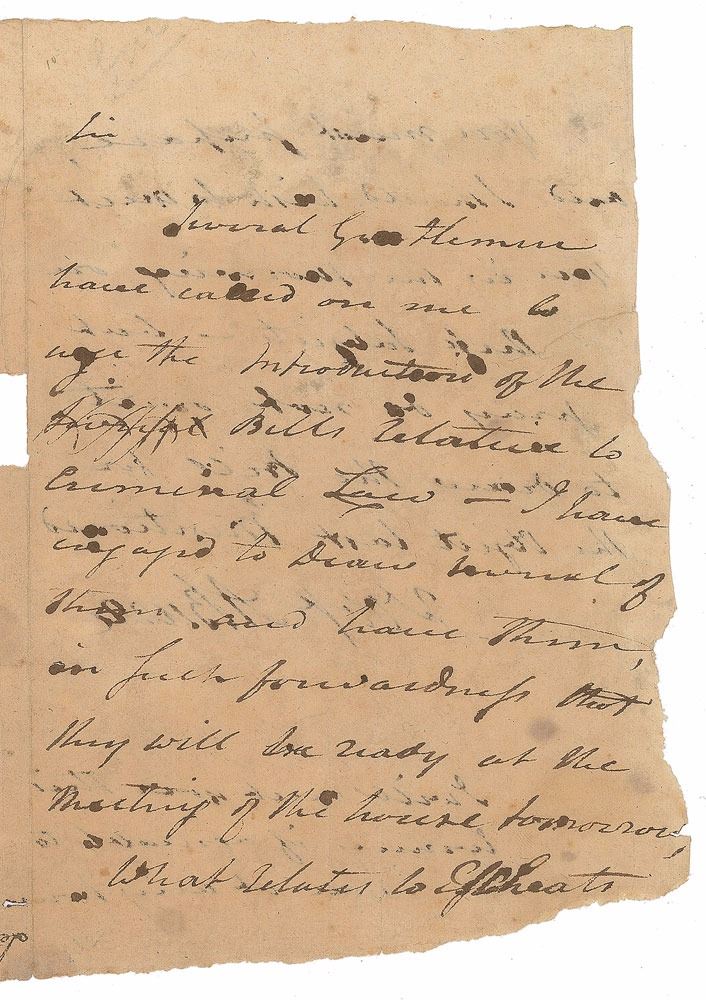 Sir
Several Gentlemen
have called on me to
urge the Introduction of the
Bills relative to
Criminal Law — I have
engag'd to Draw several of
them and have them,
in such forwardness that
they will be ready at the
Meeting of the house tomorrow,
What relates to Escheats